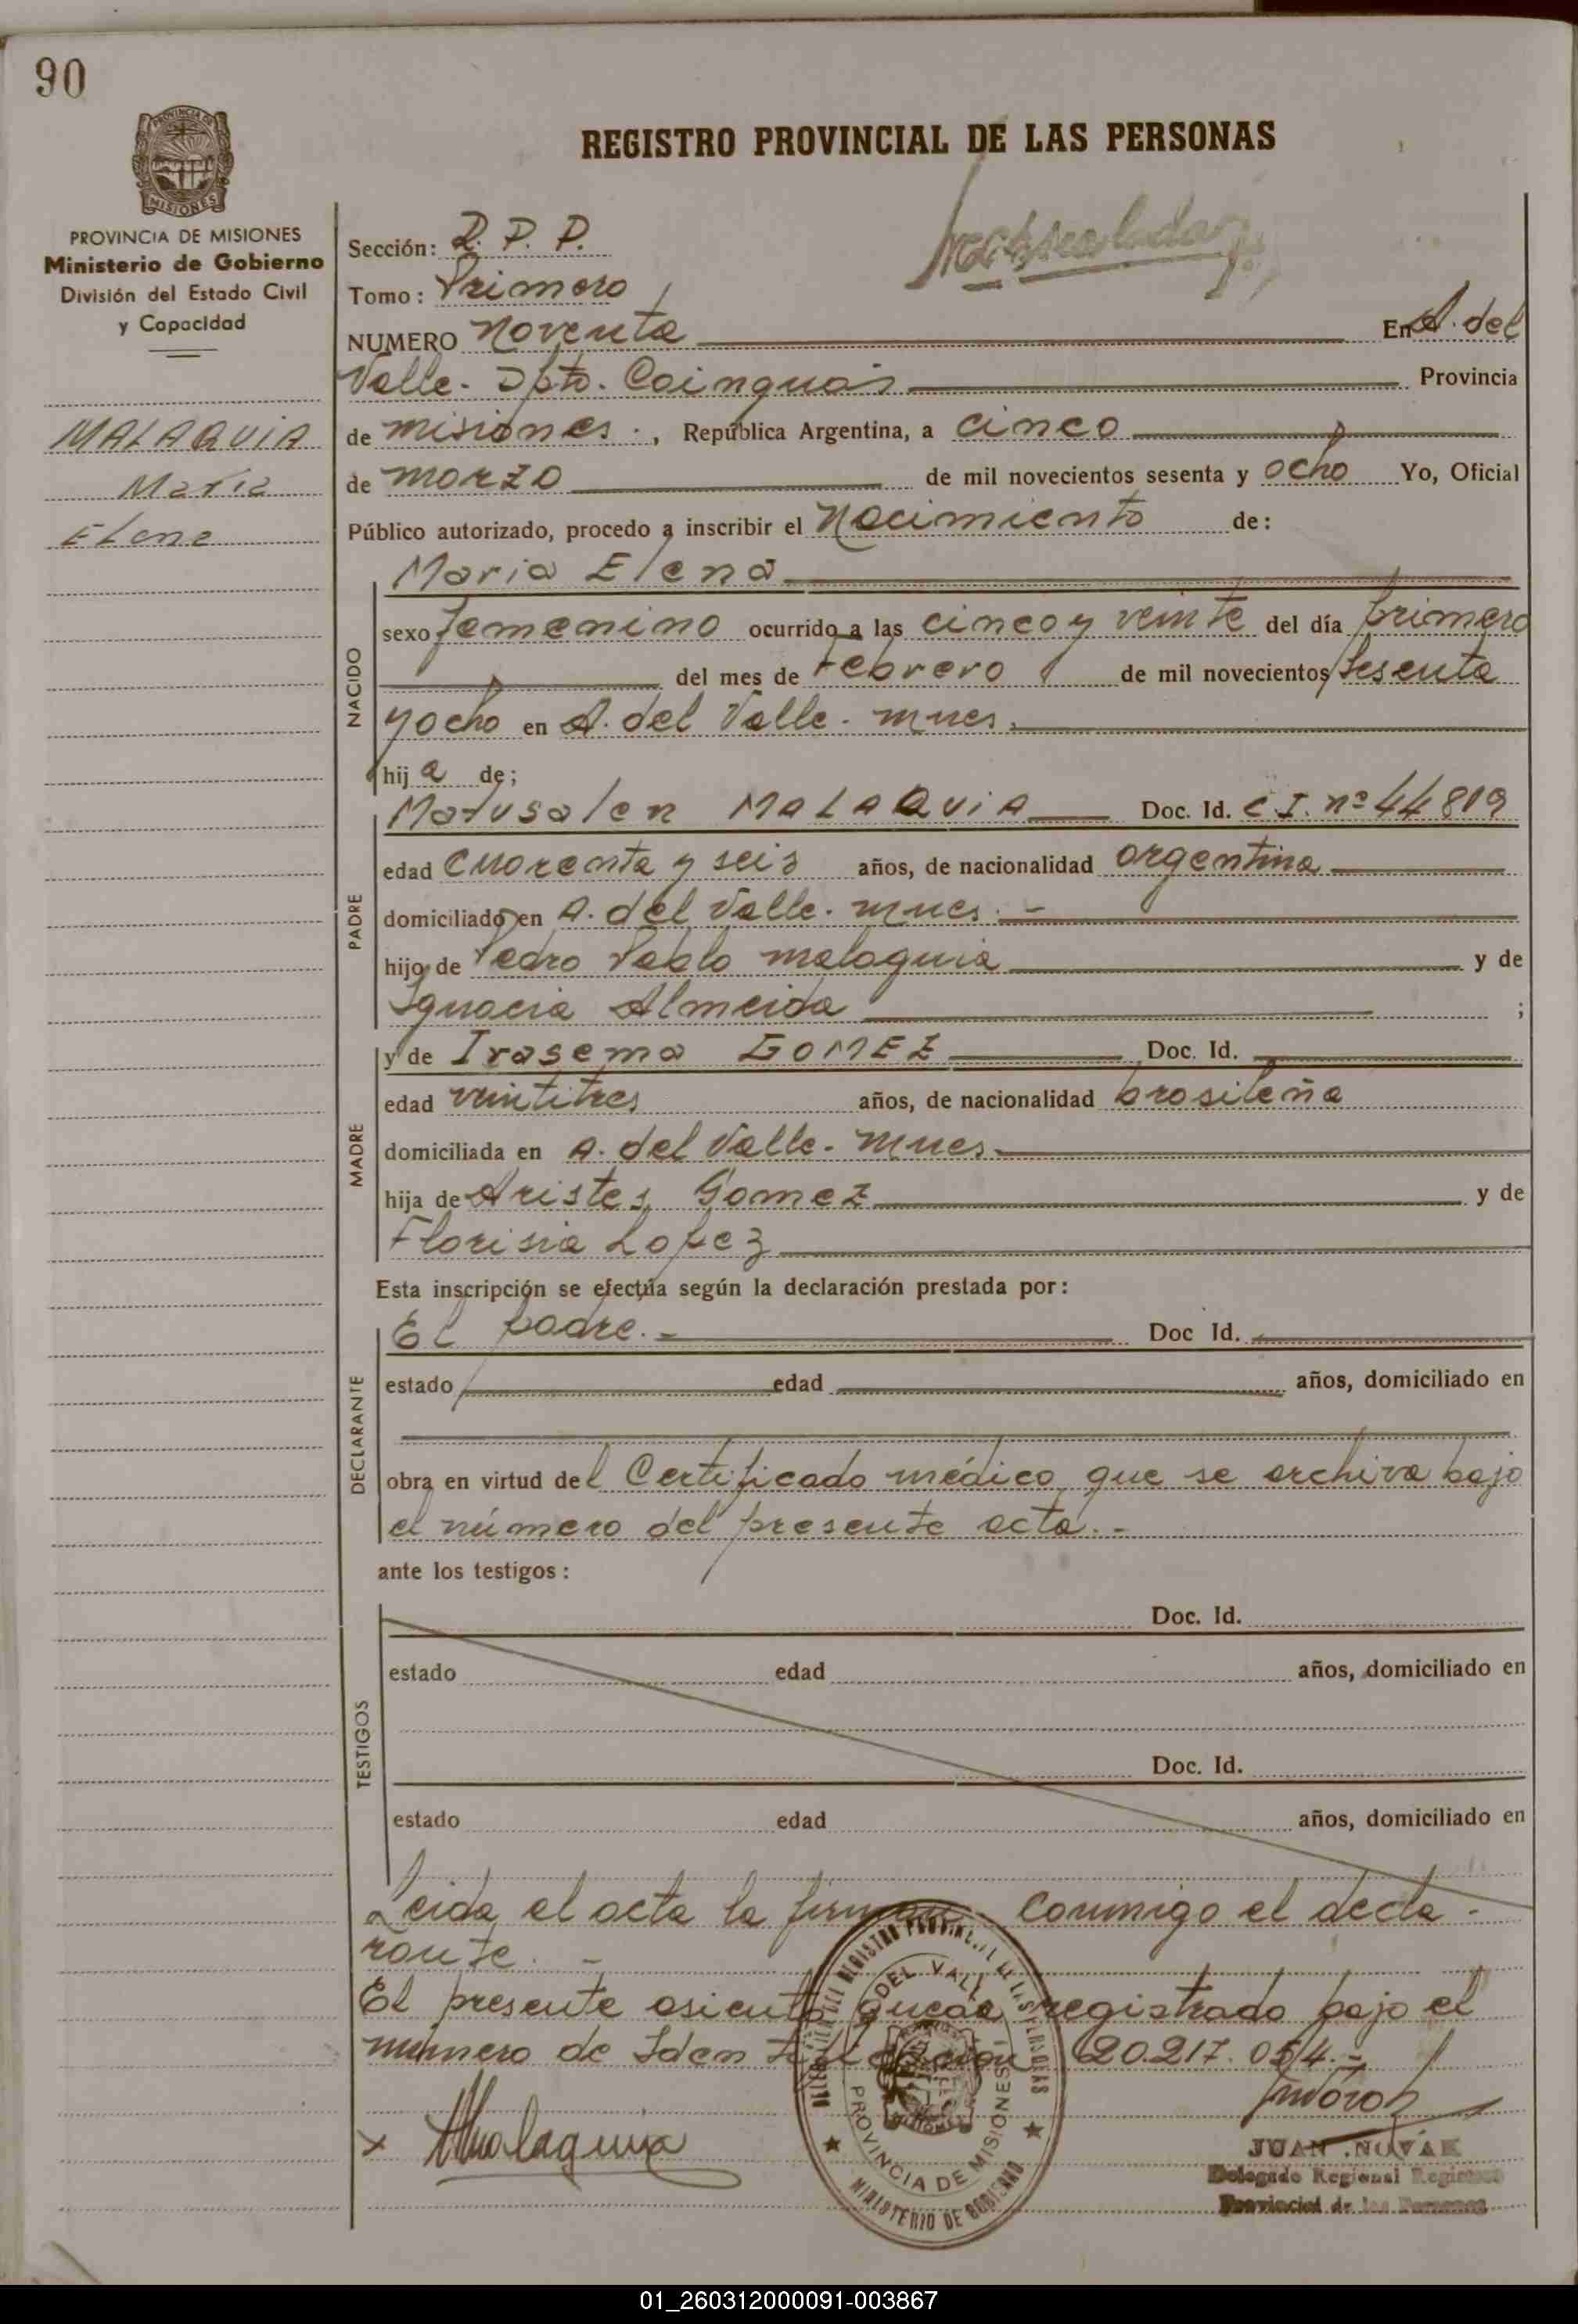 90
REGISTRO PROVINCIAL DE LAS PERSONAS
PROVINCIA DE MISIONES
MISIONES
PROVINCIA DE MISIONES
Ministerio de Gobierno
División del Estado Civil
y Capacidad
MALAQUIA
Maria
Elena
Sección: D. P. P.
Tomo: Primero
NUMERO noventa En A. del
Valle. Dpto. Cainguás Provincia
de misiones., República Argentina, a cinco
de marzo de mil novecientos sesenta y ocho Yo, Oficial
Público autorizado, procedo a inscribir el Nacimiento de:
NACIDO
Maria Elena
sexo femenino ocurrido a las cinco y veinte del día primero
del mes de Febrero de mil novecientos sesenta
y ocho en A. del Valle. mnes.
hija de;
PADRE
Matusalen MALAQUIA Doc. Id. C.I. nº 44819
edad cuarenta y seis años, de nacionalidad argentina
domiciliado en A. del Valle. mnes. -
hijo de Pedro Pablo malaquia y de
Ignacia Almeida ;
MADRE
y de Irasema GOMEZ Doc. Id.
edad veintitres años, de nacionalidad brasileña
domiciliada en A. del Valle. mnes.
hija de Aristes Gomez y de
Florisia Lopez
Esta inscripción se efectúa según la declaración prestada por:
DECLARANTE
El padre. - Doc Id.
estado edad años, domiciliado en
obra en virtud del Certificado médico que se archiva bajo
el número del presente acta. -
ante los testigos:
TESTIGOS
Doc. Id.
estado edad años, domiciliado en
Doc. Id.
estado edad años, domiciliado en
Leida el acta la firman conmigo el decla-
rante. -
El presente asiento queda registrado bajo el
número de Identificación 20.217.054. -
x Malaquia
DEL VALLE
PROVINCIA DE MISIONES
MINISTERIO DE GOBIERNO
JUAN NOVAK
Delegado Regional Registro
Provincial de las Personas
01_260312000091-003867